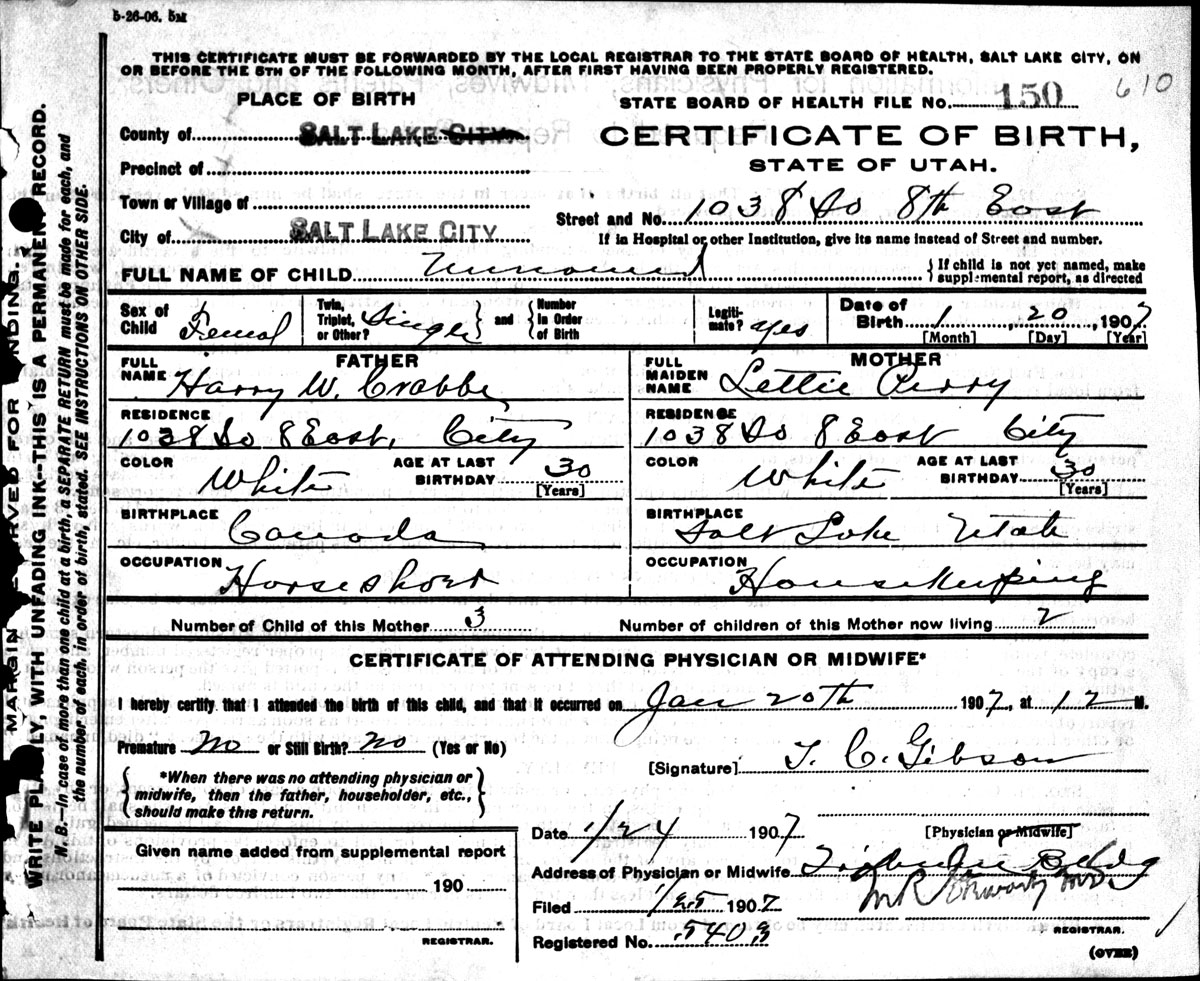 5-26-06. 5M
THIS CERTIFICATE MUST BE FORWARDED BY THE LOCAL REGISTRAR TO THE STATE BOARD OF HEALTH, SALT LAKE CITY, ON
OR BEFORE THE 5TH OF THE FOLLOWING MONTH, AFTER FIRST HAVING BEEN PROPERLY REGISTERED.
610
PLACE OF BIRTH
STATE BOARD OF HEALTH FILE No. 150
County of SALT LAKE CITY
CERTIFICATE OF BIRTH,
STATE OF UTAH.
Precinct of
Town or Village of
Street and No. 1038 So 8th East
City of SALT LAKE CITY
If in Hospital or other Institution, give its name instead of Street and number.
FULL NAME OF CHILD Unnamed { If child is not yet named, make supplemental report, as directed
Sex of Child Femal
Twin, Triplet, or Other? Single } and { Number in Order of Birth
Legitimate? yes
Date of Birth 1 20, 1907
[Month] [Day] [Year]
FATHER
FULL NAME Harry W. Crabbe
MOTHER
FULL MAIDEN NAME Lettie Perry
RESIDENCE
1038 So 8 East, City
RESIDENCE
1038 So 8 East City
COLOR White AGE AT LAST BIRTHDAY 30 [Years]
COLOR White AGE AT LAST BIRTHDAY 30 [Years]
BIRTHPLACE
Canada
BIRTHPLACE
Salt Lake Utah
OCCUPATION
Horseshoer
OCCUPATION
Housekeeping
Number of Child of this Mother 3 Number of children of this Mother now living 2
CERTIFICATE OF ATTENDING PHYSICIAN OR MIDWIFE*
I hereby certify that I attended the birth of this child, and that it occurred on Jan 20th 1907, at 12 M.
Premature No or Still Birth? No (Yes or No)
[Signature] T. C. Gibson
{ *When there was no attending physician or midwife, then the father, householder, etc., should make this return. }
Date 1/24 1907
[Physician or Midwife]
Given name added from supplemental report
190
REGISTRAR.
Address of Physician or Midwife Bldg
Filed 1/25 1907
Registered No. 5403
REGISTRAR.
(OVER)
MARGIN RESERVED FOR BINDING.
WRITE PLAINLY, WITH UNFADING INK--THIS IS A PERMANENT RECORD.
N. B.--In case of more than one child at a birth, a SEPARATE RETURN must be made for each, and
the number of each, in order of birth, stated. SEE INSTRUCTIONS ON OTHER SIDE.